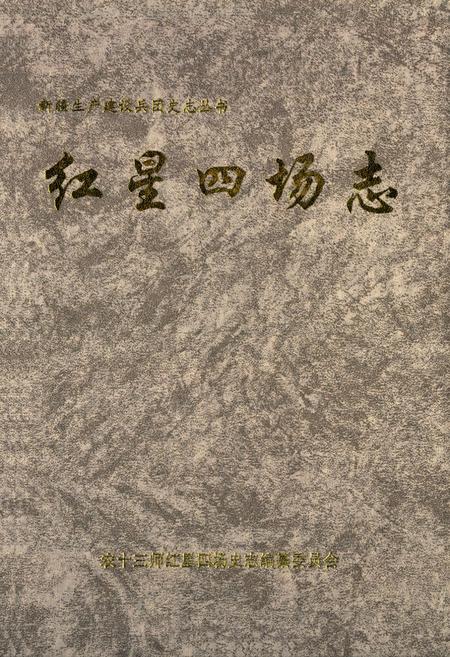 新疆生产建设兵团史志丛书
红星四场志
农十三师红星四场史志编纂委员会